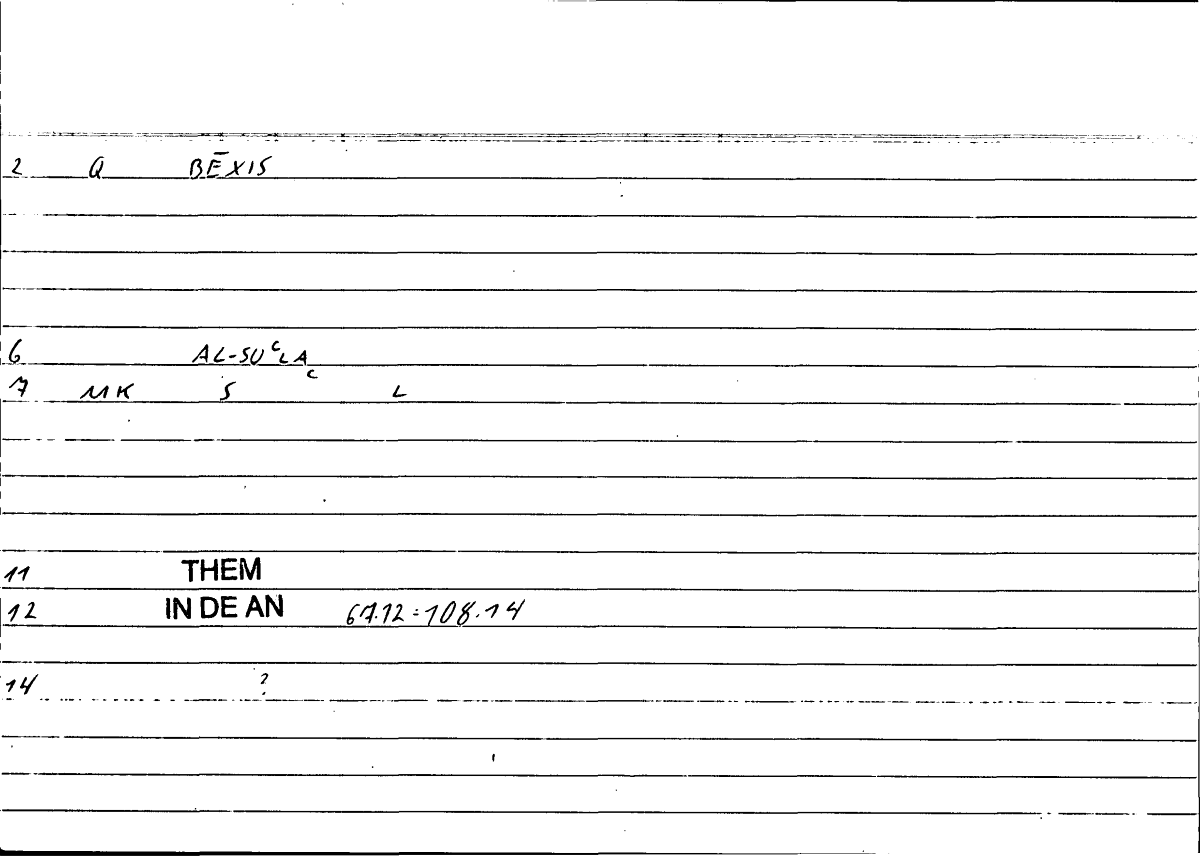 2 Q BĒXIS
6 AL-SUᶜLA
7 MK S ᶜ L
11 THEM
12 IN DE AN 67.12=108.14
14 ?